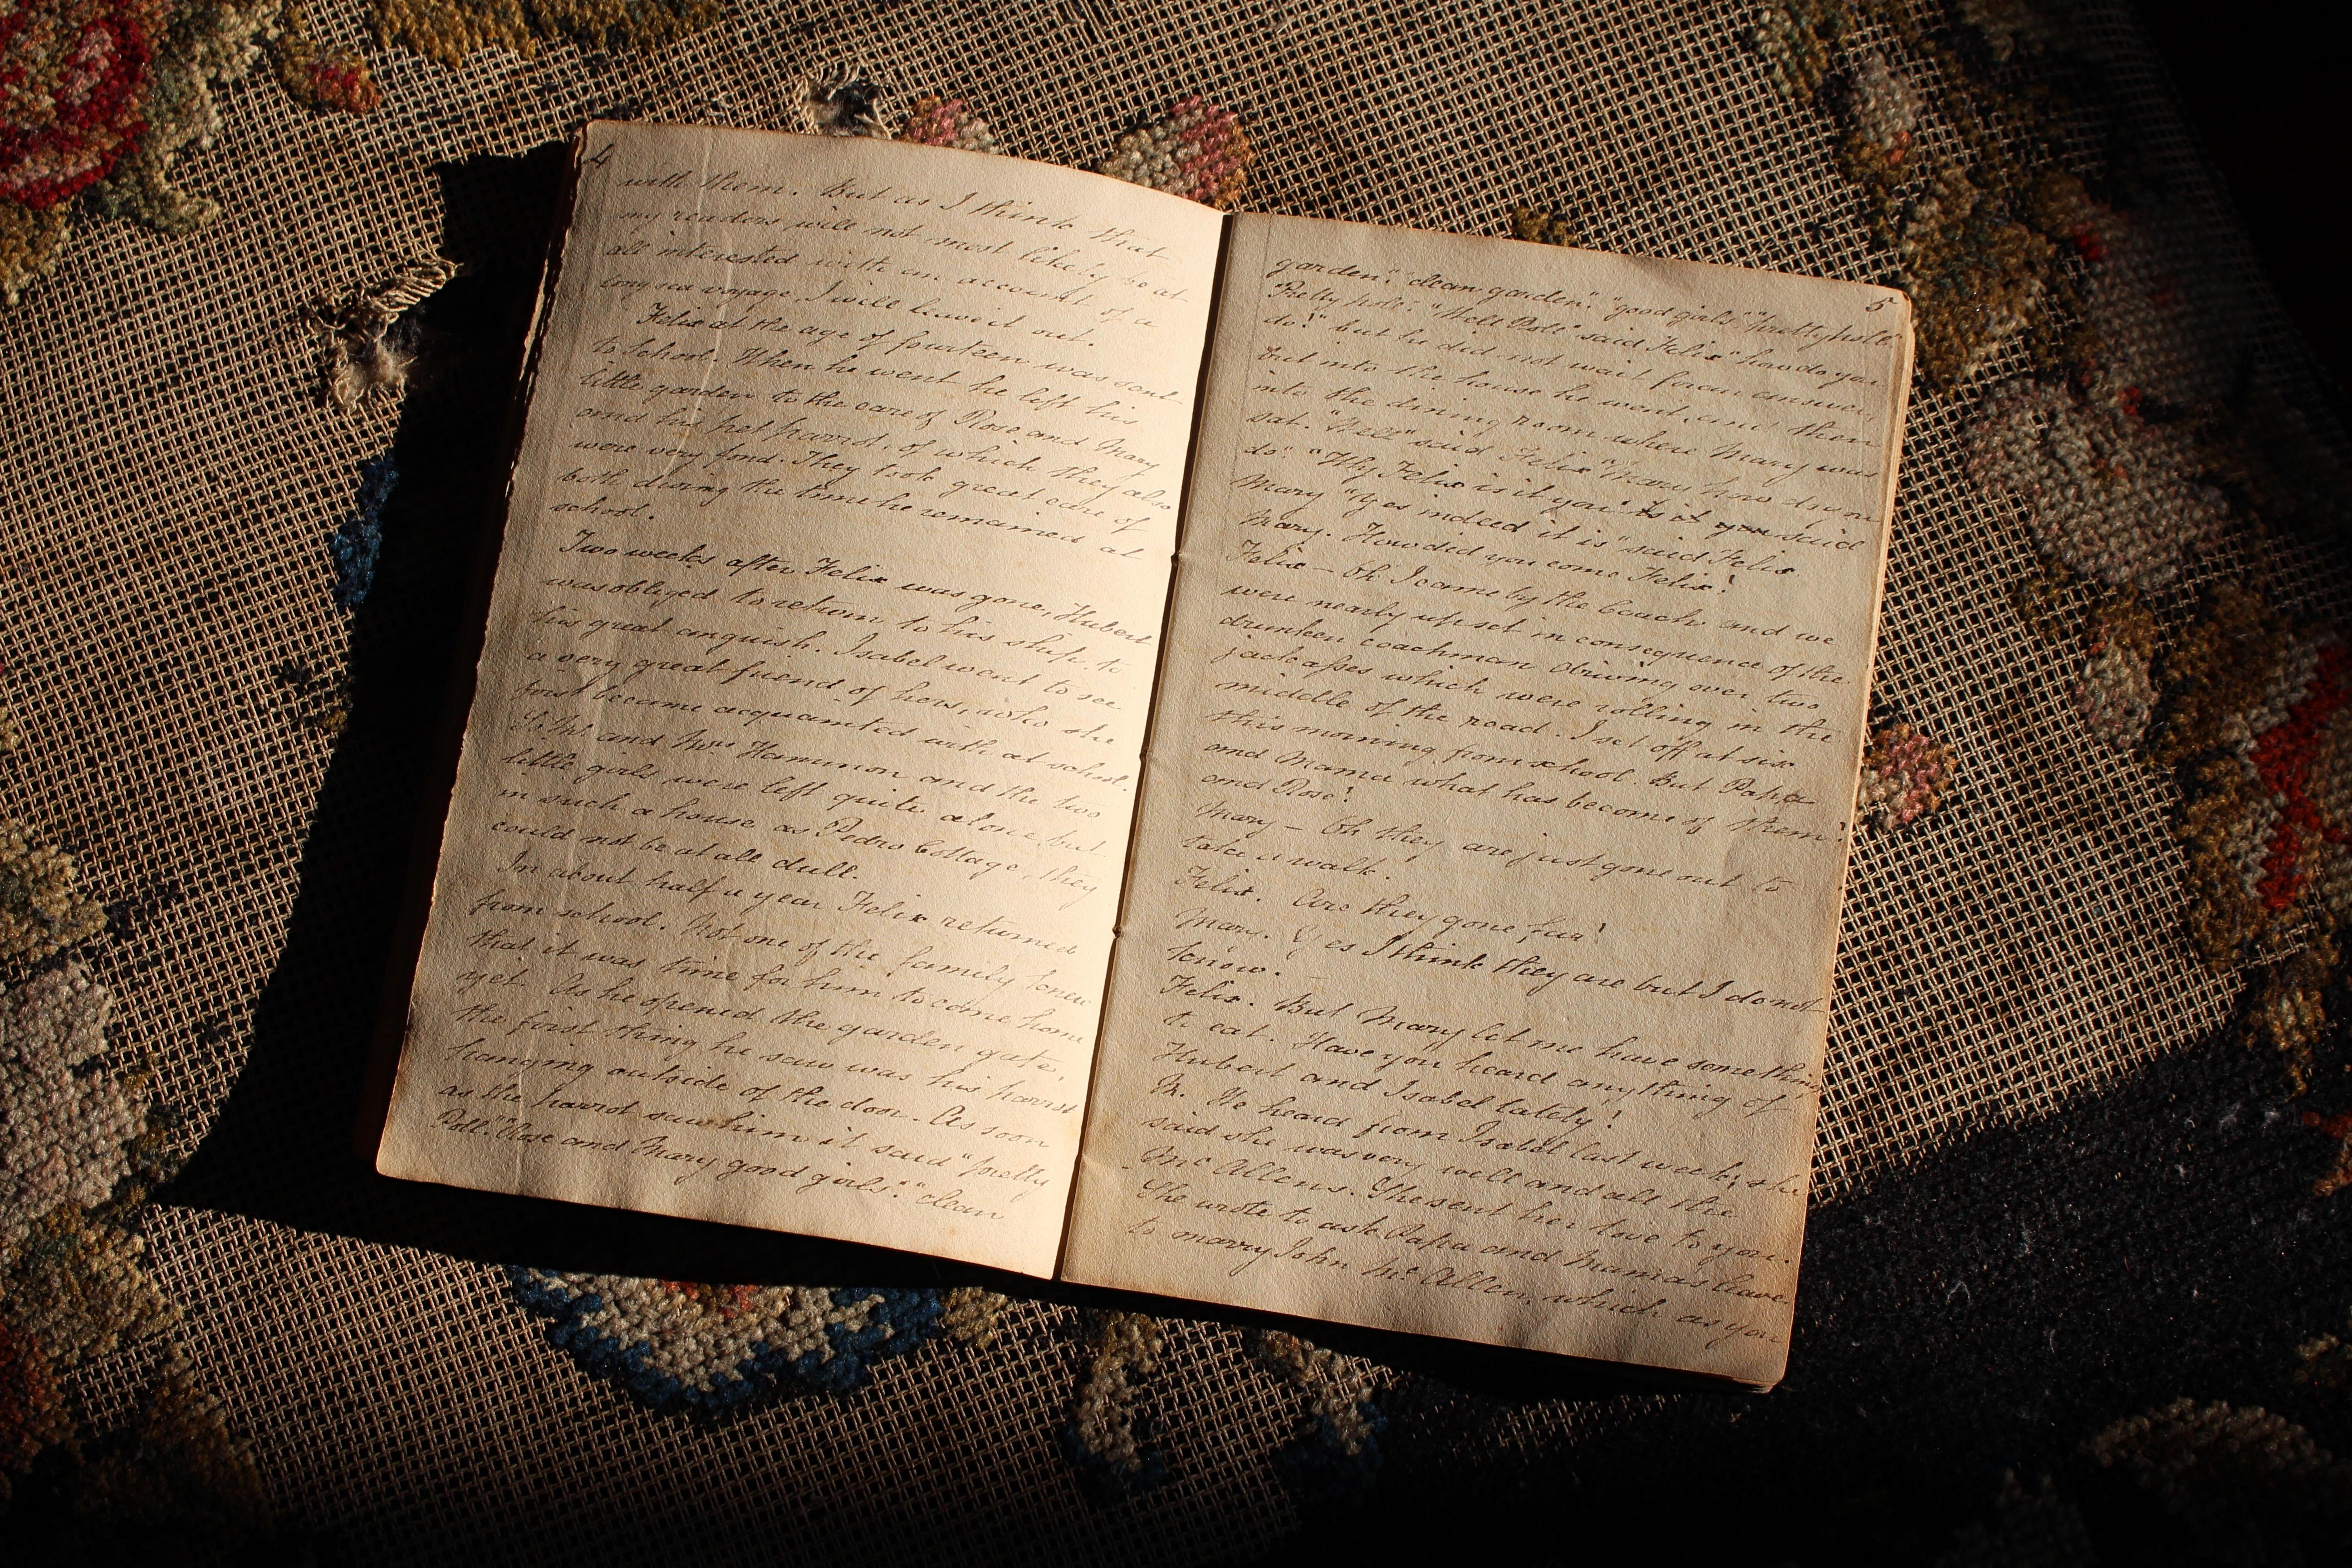 4
with them. But as I think that
my readers will not most likely be at
all interested with an account of a
long sea voyage, I will leave it out.
Felix at the age of fourteen was sent
to School. When he went he left his
little garden to the care of Rose and Mary
and his pet parrot, of which they also
were very fond. They took great care of
both during the time he remained at
school.
Two weeks after Felix was gone, Hubert
was obliged to return to his ship, to
his great anguish. Isabel went to see
a very great friend of hers, who she
first became acquainted with at school.
So Mr. and Mrs Hammon and the two
little girls were left quite alone, but
in such a house as Pedro Cottage, they
could not be at all dull.
In about half a year Felix returned
from school. Not one of the family knew
that it was time for him to come home
yet. As he opened the garden gate,
the first thing he saw was his parrot
hanging outside of the door. As soon
as the parrot saw him it said "pretty
Poll." "Rose and Mary good girls." "clean
5
garden." "clean garden." "good girls" "pretty poll"
"Pretty poll." "Well Poll" said Felix "how do you
do!" but he did not wait for an answer,
but into the house he went, and then
into the dining room where Mary was
sat. "Well" said Felix "Mary how do you
do" "Why Felix is it you! is it you said
Mary "Yes indeed it is" said Felix.
Mary. How did you come Felix!
Felix — Oh I came by the Coach and we
were nearly upset in consequence of the
drunken coachman driving over two
jackasses which were rolling in the
middle of the road. I set off at six
this morning from school. But Papa
and Mama what has become of them?
and Rose!
Mary — Oh they are just gone out to
take a walk.
Felix. Are they gone far!
Mary. Yes I think they are but I do not
know.
Felix. But Mary let me have something
to eat. Have you heard anything of
Hubert and Isabel lately!
M. We heard from Isabel last week; she
said she was very well and all the
McAllens. She sent her love to you.
She wrote to ask Papa and Mamas leave
to marry John McAllen, which as you